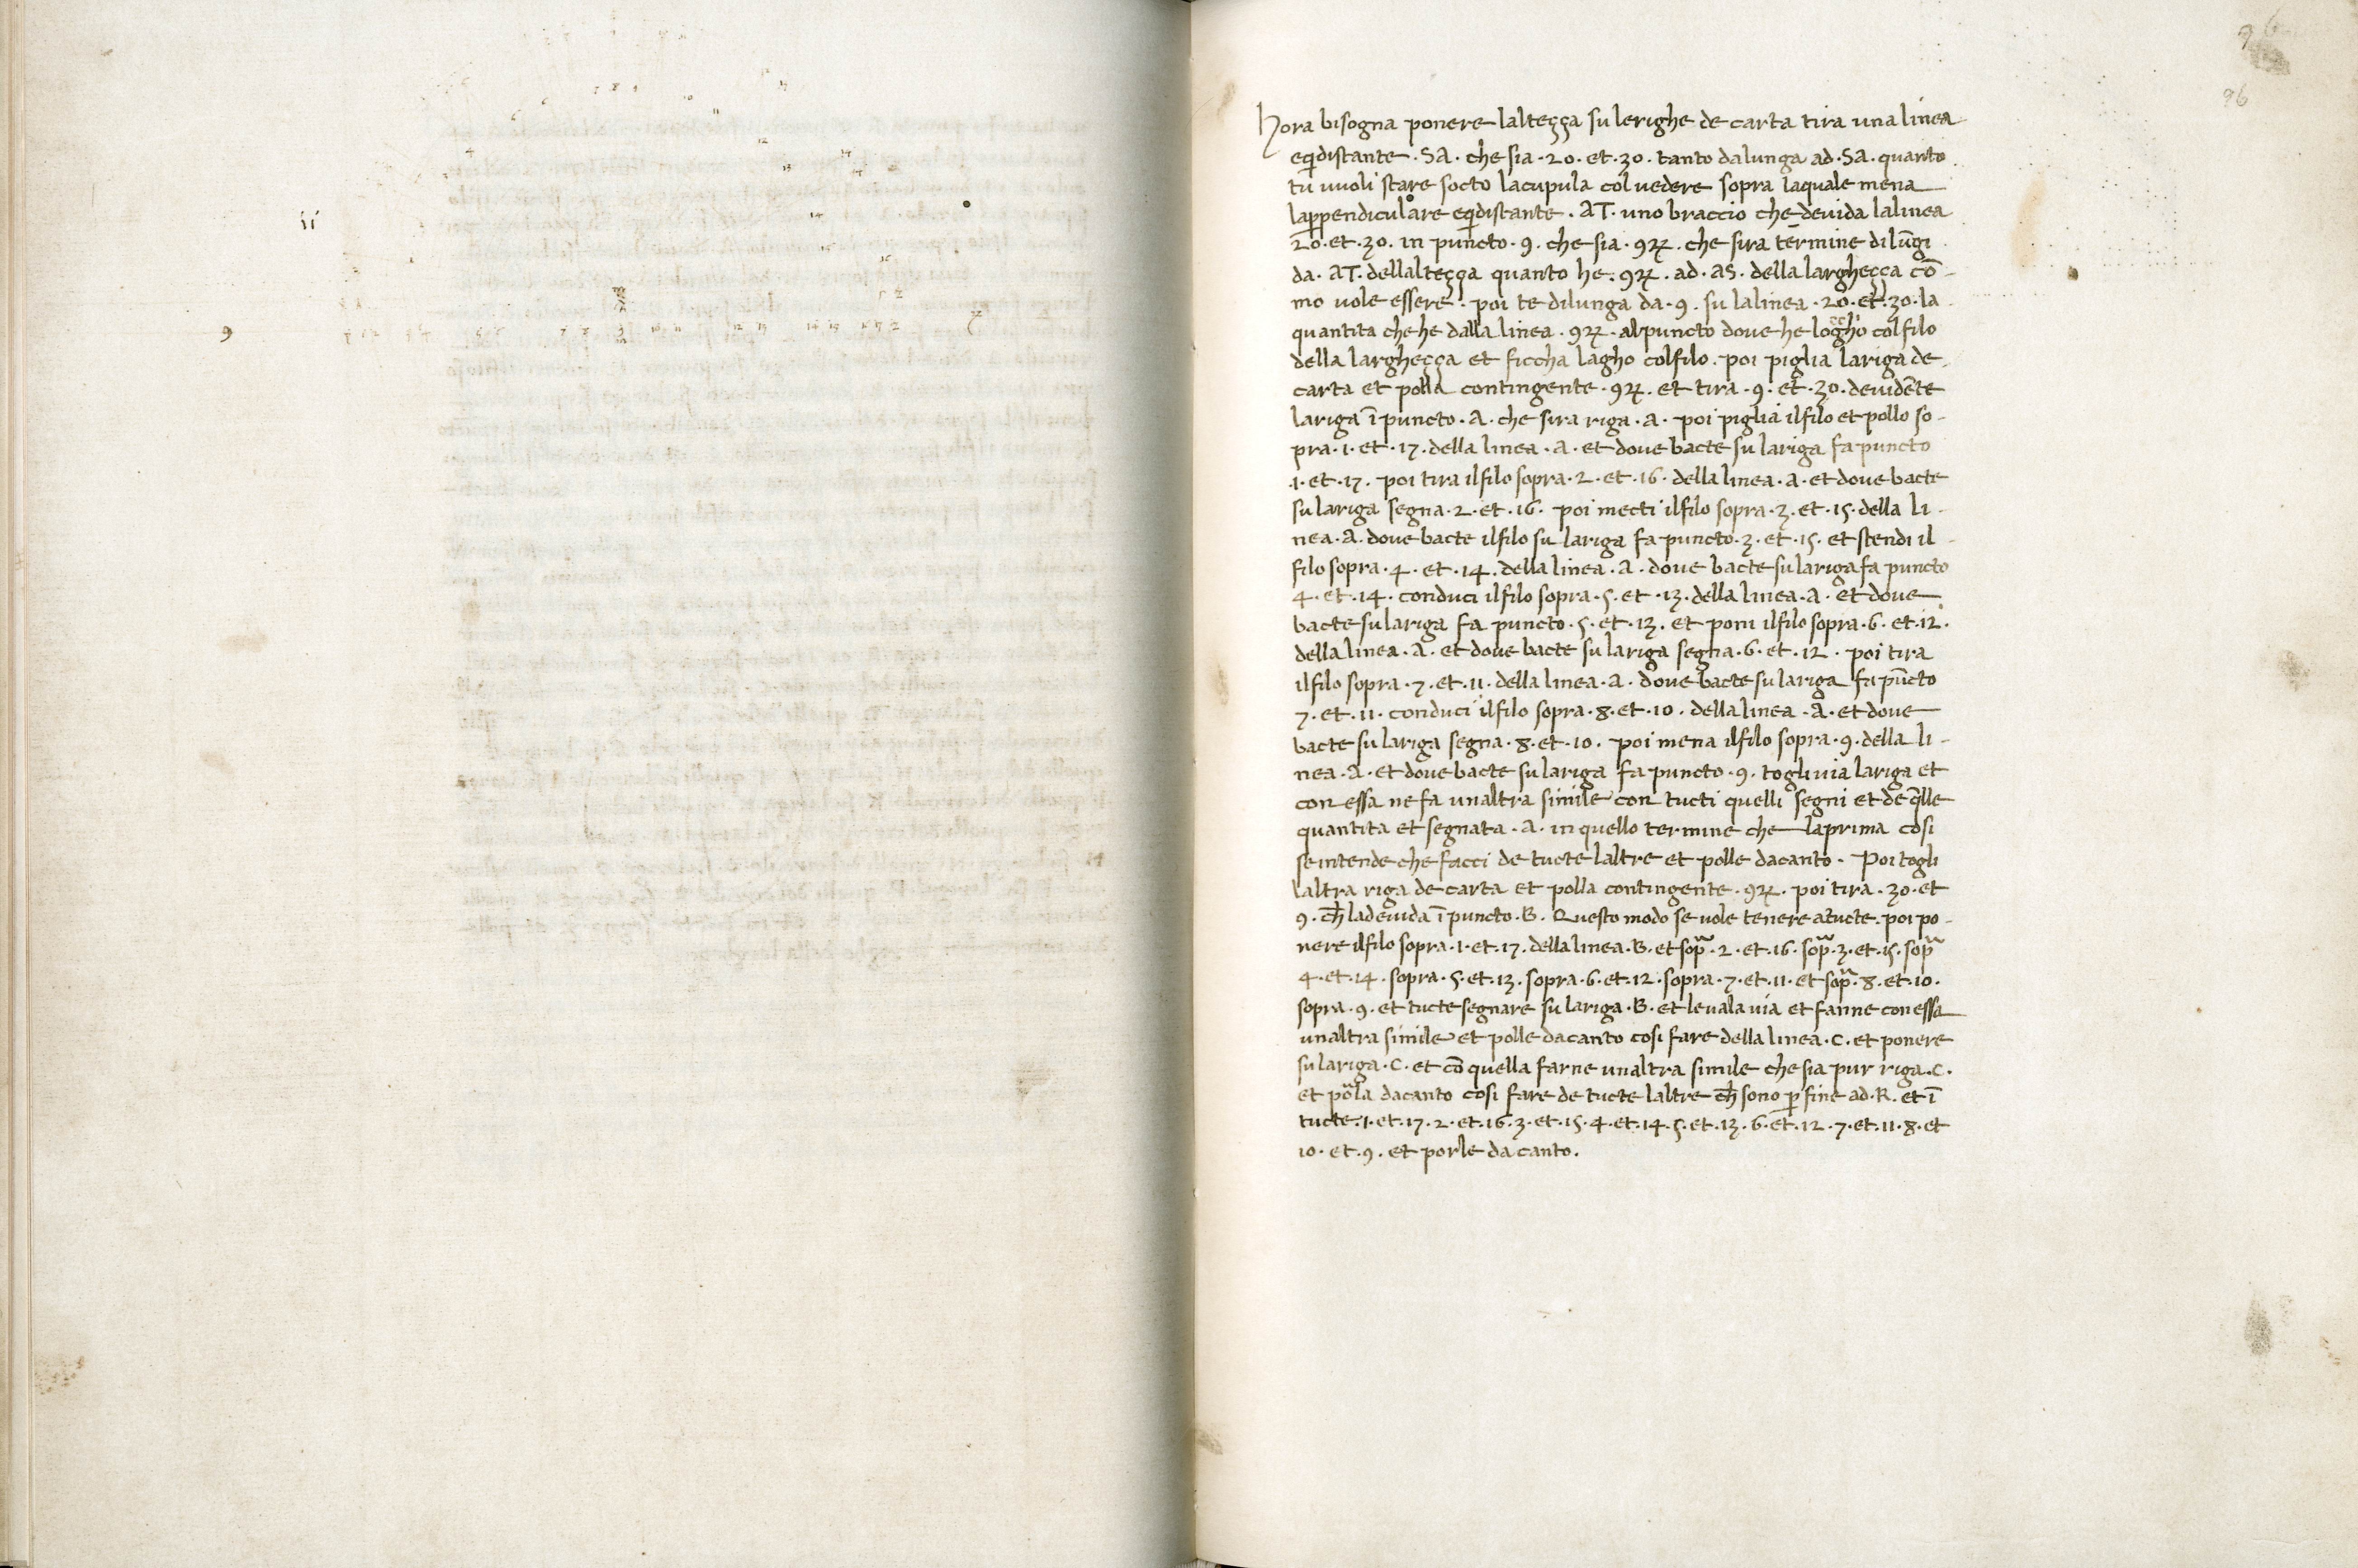 ii
9
96
96
Hora bisogna ponere lalteçça su lerighe de carta tira una linea
eq̄distante · SA · che sia · 20 · et · 30 · tanto dalunga ad · SA · quanto
tu vuoli stare socto lacupula col vedere sopra laquale mena
lap̄pendiculare eq̄distante · AT · uno braccio che devida lalinea
20 · et · 30 · in puncto · 9 · che sia · 9 · che sira termine dilūgi
da · AT · dellalteçça quanto he · 9 · ad · AS · della largheçça cō
mo vole essere · poi te dilunga da · 9 · su lalinea · 20 · et · 30 · la
quantita che he dalla linea · 9 · alpuncto dove he logho colfilo
della largheçça et ficcha lagho colfilo · poi piglia lariga de
carta et polla contingente · 9 · et tira · 9 · et · 30 · devidēte
lariga ī puncto · A · che sira riga · A · poi piglia ilfilo et pollo so
pra · 1 · et · 17 · della linea · A · et dove bacte su lariga fa puncto
· 1 · et · 17 · poi tira ilfilo sopra · 2 · et · 16 · della linea · A · et dove bacte
su lariga segna · 2 · et · 16 · poi mecti ilfilo sopra · 3 · et · 15 · della li
nea · A · dove bacte ilfilo su lariga fa puncto · 3 · et · 15 · et stendi il
filo sopra · 4 · et · 14 · della linea · A · dove bacte su lariga fa puncto
4 · et · 14 · conduci ilfilo sopra · 5 · et · 13 · della linea · A · et dove
bacte su lariga fa puncto · 5 · et · 13 · et poni ilfilo sopra · 6 · et · 12 ·
della linea · A · et dove bacte su lariga segna · 6 · et · 12 · poi tira
ilfilo sopra · 7 · et · 11 · della linea · A · dove bacte su lariga fa pūcto
7 · et · 11 · conduci ilfilo sopra · 8 · et · 10 · della linea · A · et dove
bacte su lariga segna · 8 · et · 10 · poi mena ilfilo sopra · 9 · della li
nea · A · et dove bacte su lariga fa puncto · 9 · togli via lariga et
con essa ne fa unaltra simile con tucti quelli segni et de q̄lle
quantita et segnata · A · in quello termine che laprima cosi
se intende che facci de tucte laltre et polle dacanto · Poi togli
laltra riga de carta et polla contingente · 9 · poi tira · 30 · et
9 · ch̄ la devida ī puncto · B · Questo modo se vole tenere a tucte · poi po
nere ilfilo sopra · 1 · et · 17 · della linea · B · et sop̄ · 2 · et · 16 · sop̄ · 3 · et · 15 · sop̄
4 · et · 14 · sopra · 5 · et · 13 · sopra · 6 · et · 12 · sopra · 7 · et · 11 · et sop̄ · 8 · et · 10 ·
sopra · 9 · et tucte segnare su lariga · B · et levala via et fanne con essa
unaltra simile et polle dacanto cosi fare della linea · C · et ponere
su lariga · C · et cō quella farne unaltra simile che sia pur riga · C ·
et porla dacanto cosi fare de tucte laltre ch̄ sono p̄ fine ad · R · et ī
tucte · 1 · et · 17 · 2 · et · 16 · 3 · et · 15 · 4 · et · 14 · 5 · et · 13 · 6 · et · 12 · 7 · et · 11 · 8 · et
10 · et · 9 · et porle da canto.